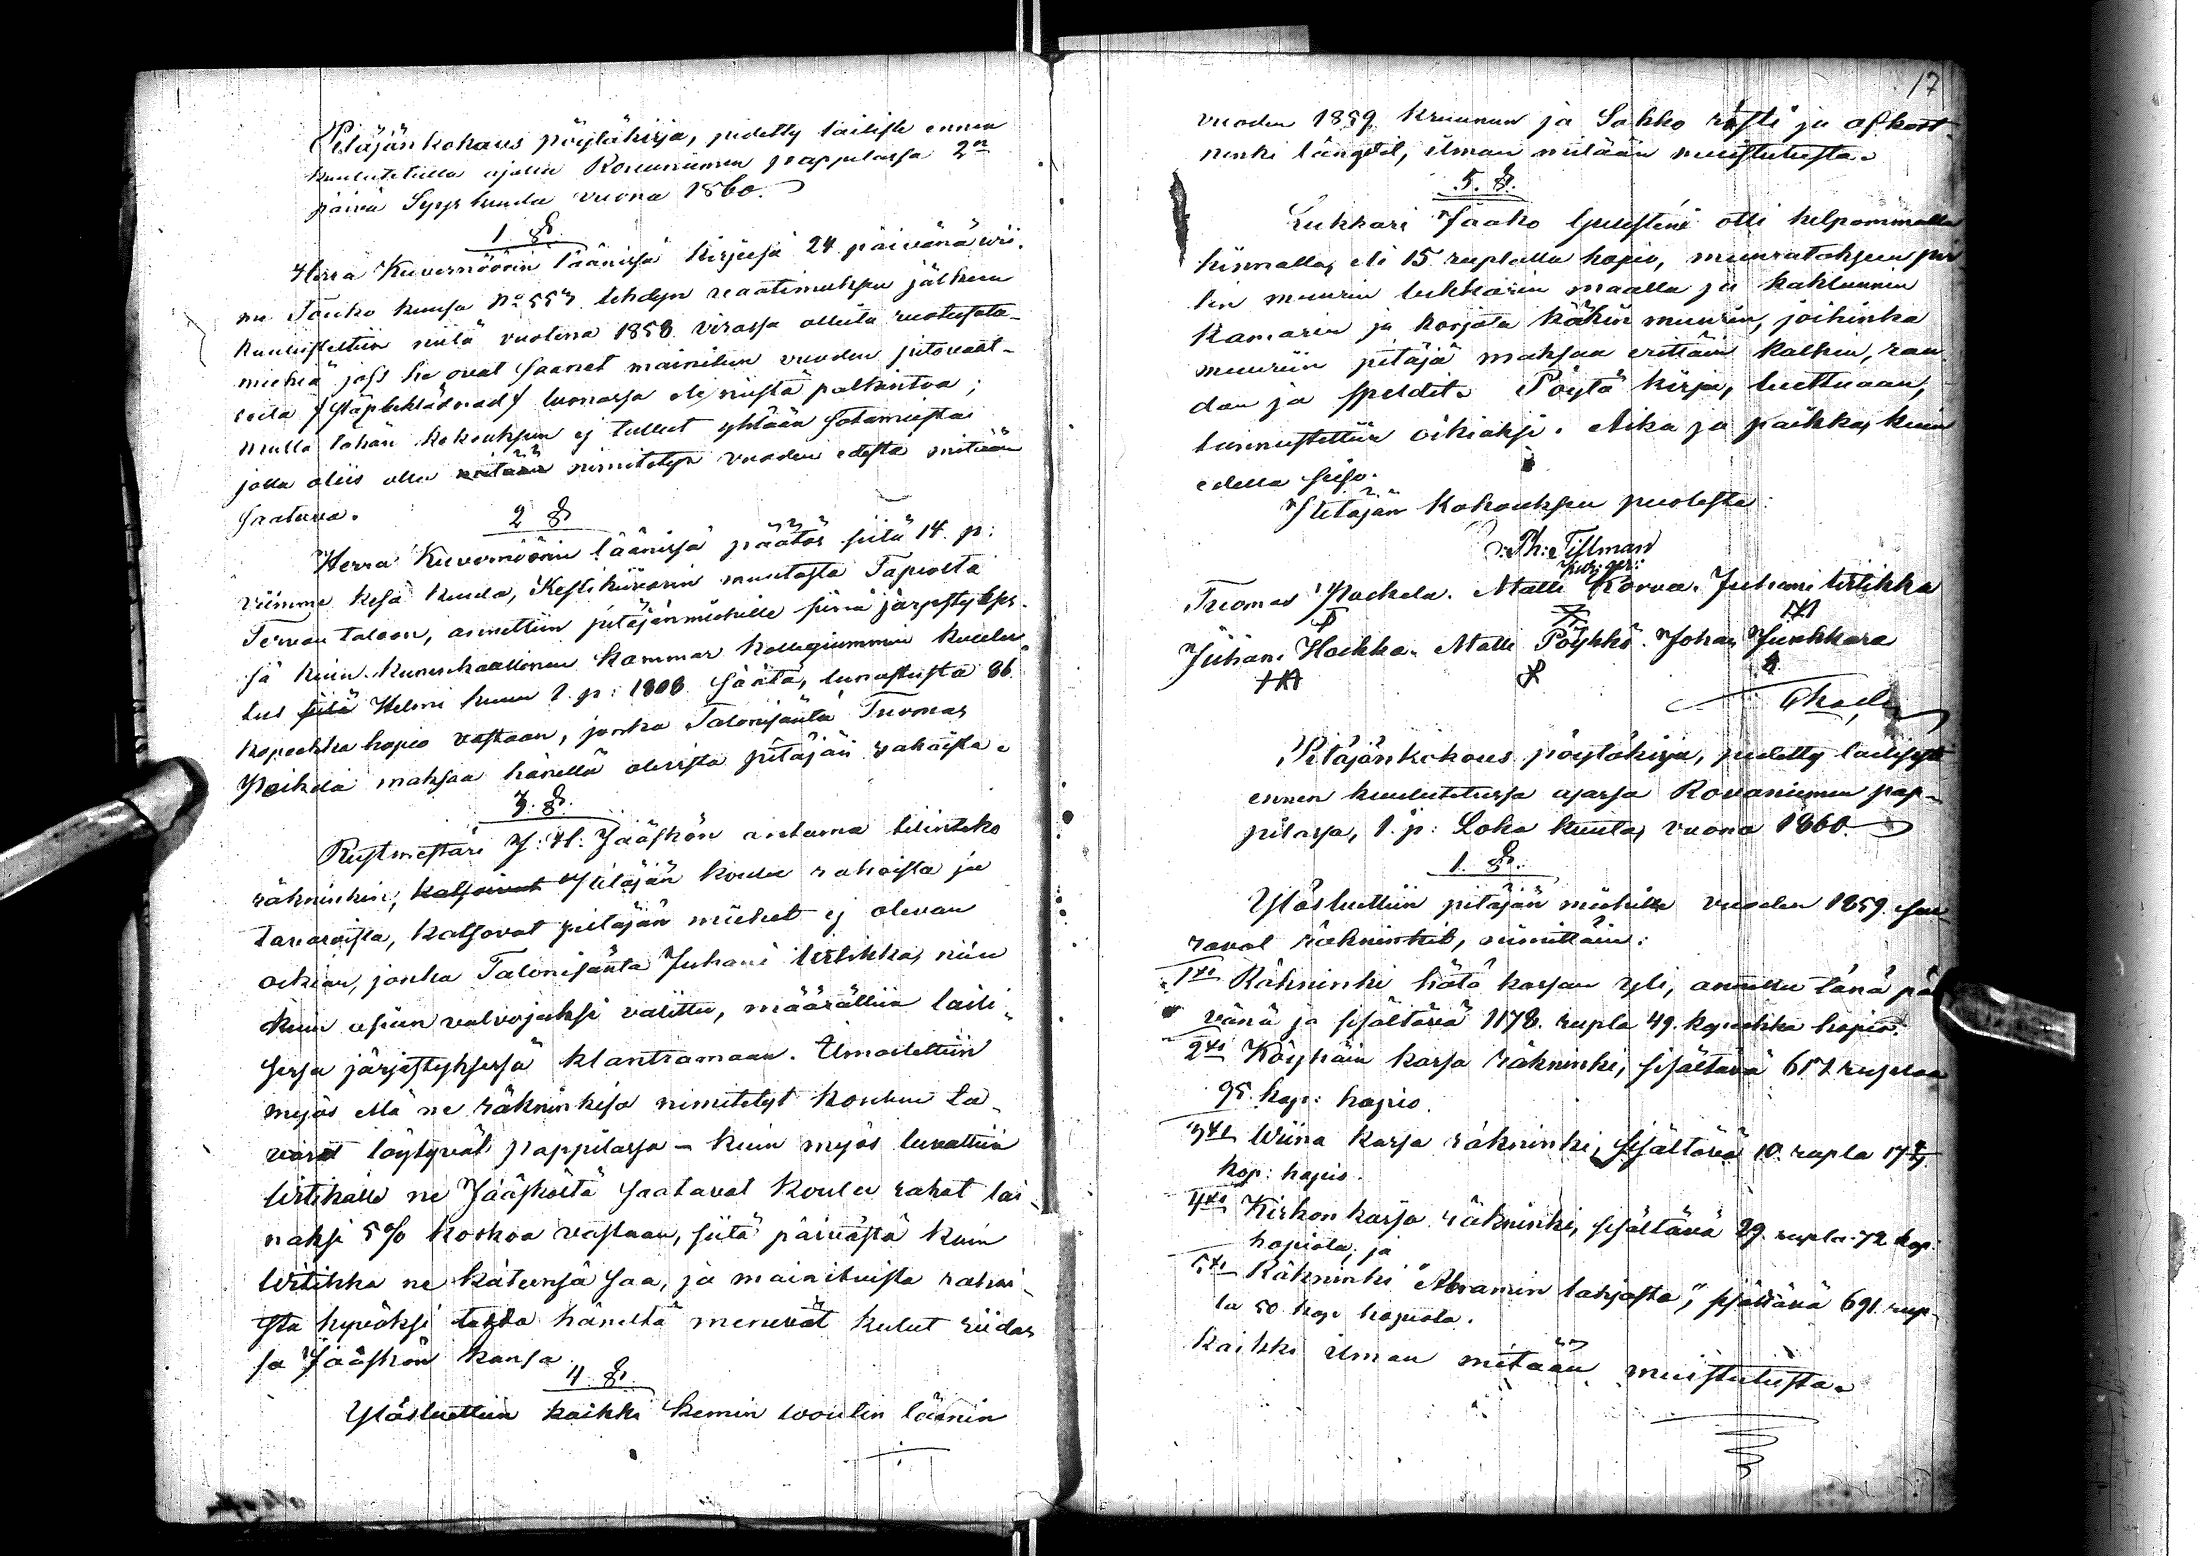 Pitäjänkokous pöytäkirja, pidetty lailliste ennen
kuulutetulla ajalla Rovaniemen pappilassa 2n
päivä Syys kuuta vuona 1860.
1 §.
Herra Kuvernöörin läänissä kirjeesä 24 päivänä vii-
me Touko kuusa No 557 tehdyn vaatimuksen jälkeen
kuulusteltiin niitä vuotena 1858 virassa olleita ruotusota-
miehiä joss he ovat saanet mainitun vuoden pitovaat-
teita /släpbeklädnad/ luonassa eli niistä palkintoa;
mutta tähän kokouksen ej tullut yhtään sotamiestä
jolla oliis ollu mitään nimitetyn vuoden edestä mitään
saatavaa.
2 §
Herra Kuvernöörin läänissä päätös siitä 14. p:
viimme kesä kuuta, Kestikiivarin muutosta Tapiolta
Tervan taloon, annettiin pitäjänmiehille siinä järjestykses-
sä kuin Kunnikaallinen Kammar Kollegiummin kuulu-
tus siitä Helmi kuun 1. p: 1808 säätä, lunastusta 86
kopeekka hopio vastaan, jonka Talonisäntä Tuomas
Paikela maksaa hänellä olevista pitäjän rahoista.
3. §.
Rustmestäri J: H: Jääskön antama tilinteko
räkninkin, katsoivat Pitäjän koulu rahoista ja
tavaroista, katsovat pitäjän miehet ej olevan
oikian, jonka Talonisänta Juhani Wtikka, niin
kuin asian valvojaksi valittu, määrättiin laili-
sessa järjestyksessä klantraamaan. Ilmoitettiin
myös että ne räkninkisä nimitetyt koulun ta-
varat löytyvät pappilassa - kuin myös luvattiin
Wtikalle ne Jääsköltä saatavat koulu rahat lai-
naksi 5% korkoa vastaan, siitä päivästä kuin
Wtikka ne käteensä saa, ja mainituista rahoi-
sta hyväksi tehdä häneltä menevät kulut riidas-
sa Jääskön kansa.
4. §.
Ylösluettiin kaikki Kemin woutin läänin
17
vuoden 1859 kruunun ja Sakko rästi ja afkort-
ninki längdit, ilman mitään muistutusta.
5. §.
Lukkari Jaako Gueste otti helpommalla
hinnalla, eli 15 ruplalla hopio, muurataksen pir-
tin muurin lukkarin maalla ja kahtunnin
kamarin ja korjata kökin muurin, joihinka
muuriin pitäjä maksaa erittäin kalkin, rau-
dan ja speldit. Pöytä kirja, luettuaan,
tunnustettiin oikiaksi. Aika ja paikka, kuin
edellä seiso.
Pitäjän Kokouksen puolesta:
D: Ph: Tillman
Tuomas Paikela. Matti Korva. Juhani Wtikka
Juhani Hoikka. Matti Pöykkö. Johan Junkkara
Pitäjänkokous pöytäkirja, pidetty lailisesti
ennen kuulutetussa ajassa Rovaniemen pap-
pilassa, 1. p: Loka kuuta, vuona 1860.
1. §.
Ylösluettiin pitäjän miehille vuoden 1859 seu-
ravat räkninkit, nimittäin:
1xi Räkninki hätä kassan yli, annettu tänä päi-
vänä ja sisältävä 1178. rupla 49. kopeekka hopio.
2xi Köyhäin kassa räkninki, sisältävä 617 ruplaa
95. kop: hopio.
3xi Wiina kassa räkninki, sisältävä 10. rupla 17½
kop: hopio.
4xi Kirkon kassa räkninki, sisältävä 29. rupla 72 kop
hopiota; ja
5xi Räkninki "Abramin lahjasta", sisältävä 691 rup-
la 50 kop hopiota.
Kaikki ilman mitään muistutusta.